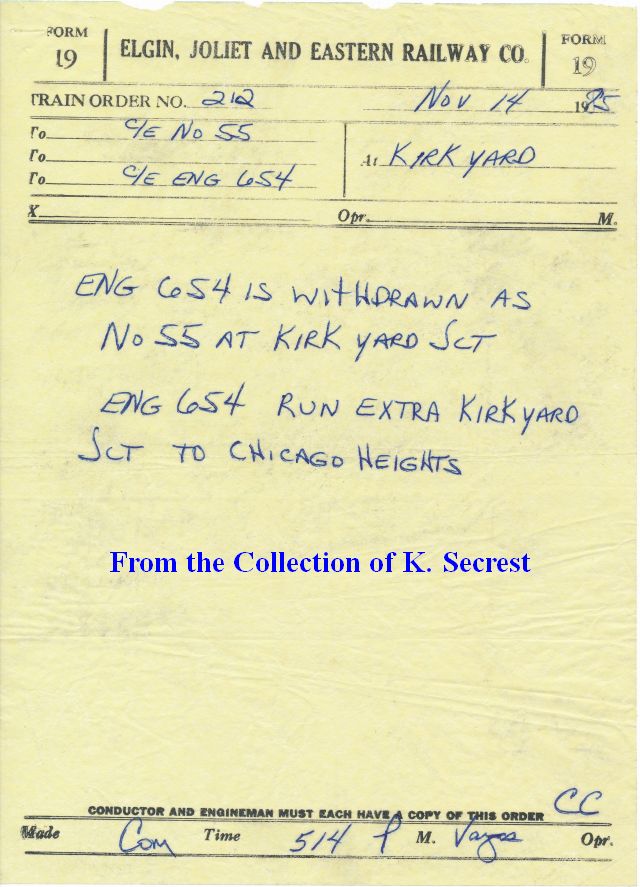 FORM 19 ELGIN, JOLIET AND EASTERN RAILWAY CO. FORM 19
TRAIN ORDER NO. 212 Nov 14 1985
To C/E No 55
To At KIRK YARD
To C/E ENG 654
X Opr. M.
ENG 654 IS WITHDRAWN AS
No 55 AT KIRK YARD JCT
ENG 654 RUN EXTRA KIRK YARD
JCT TO CHICAGO HEIGHTS
From the Collection of K. Secrest
CONDUCTOR AND ENGINEMAN MUST EACH HAVE A COPY OF THIS ORDER CC
Made Com Time 514 P M. Opr.